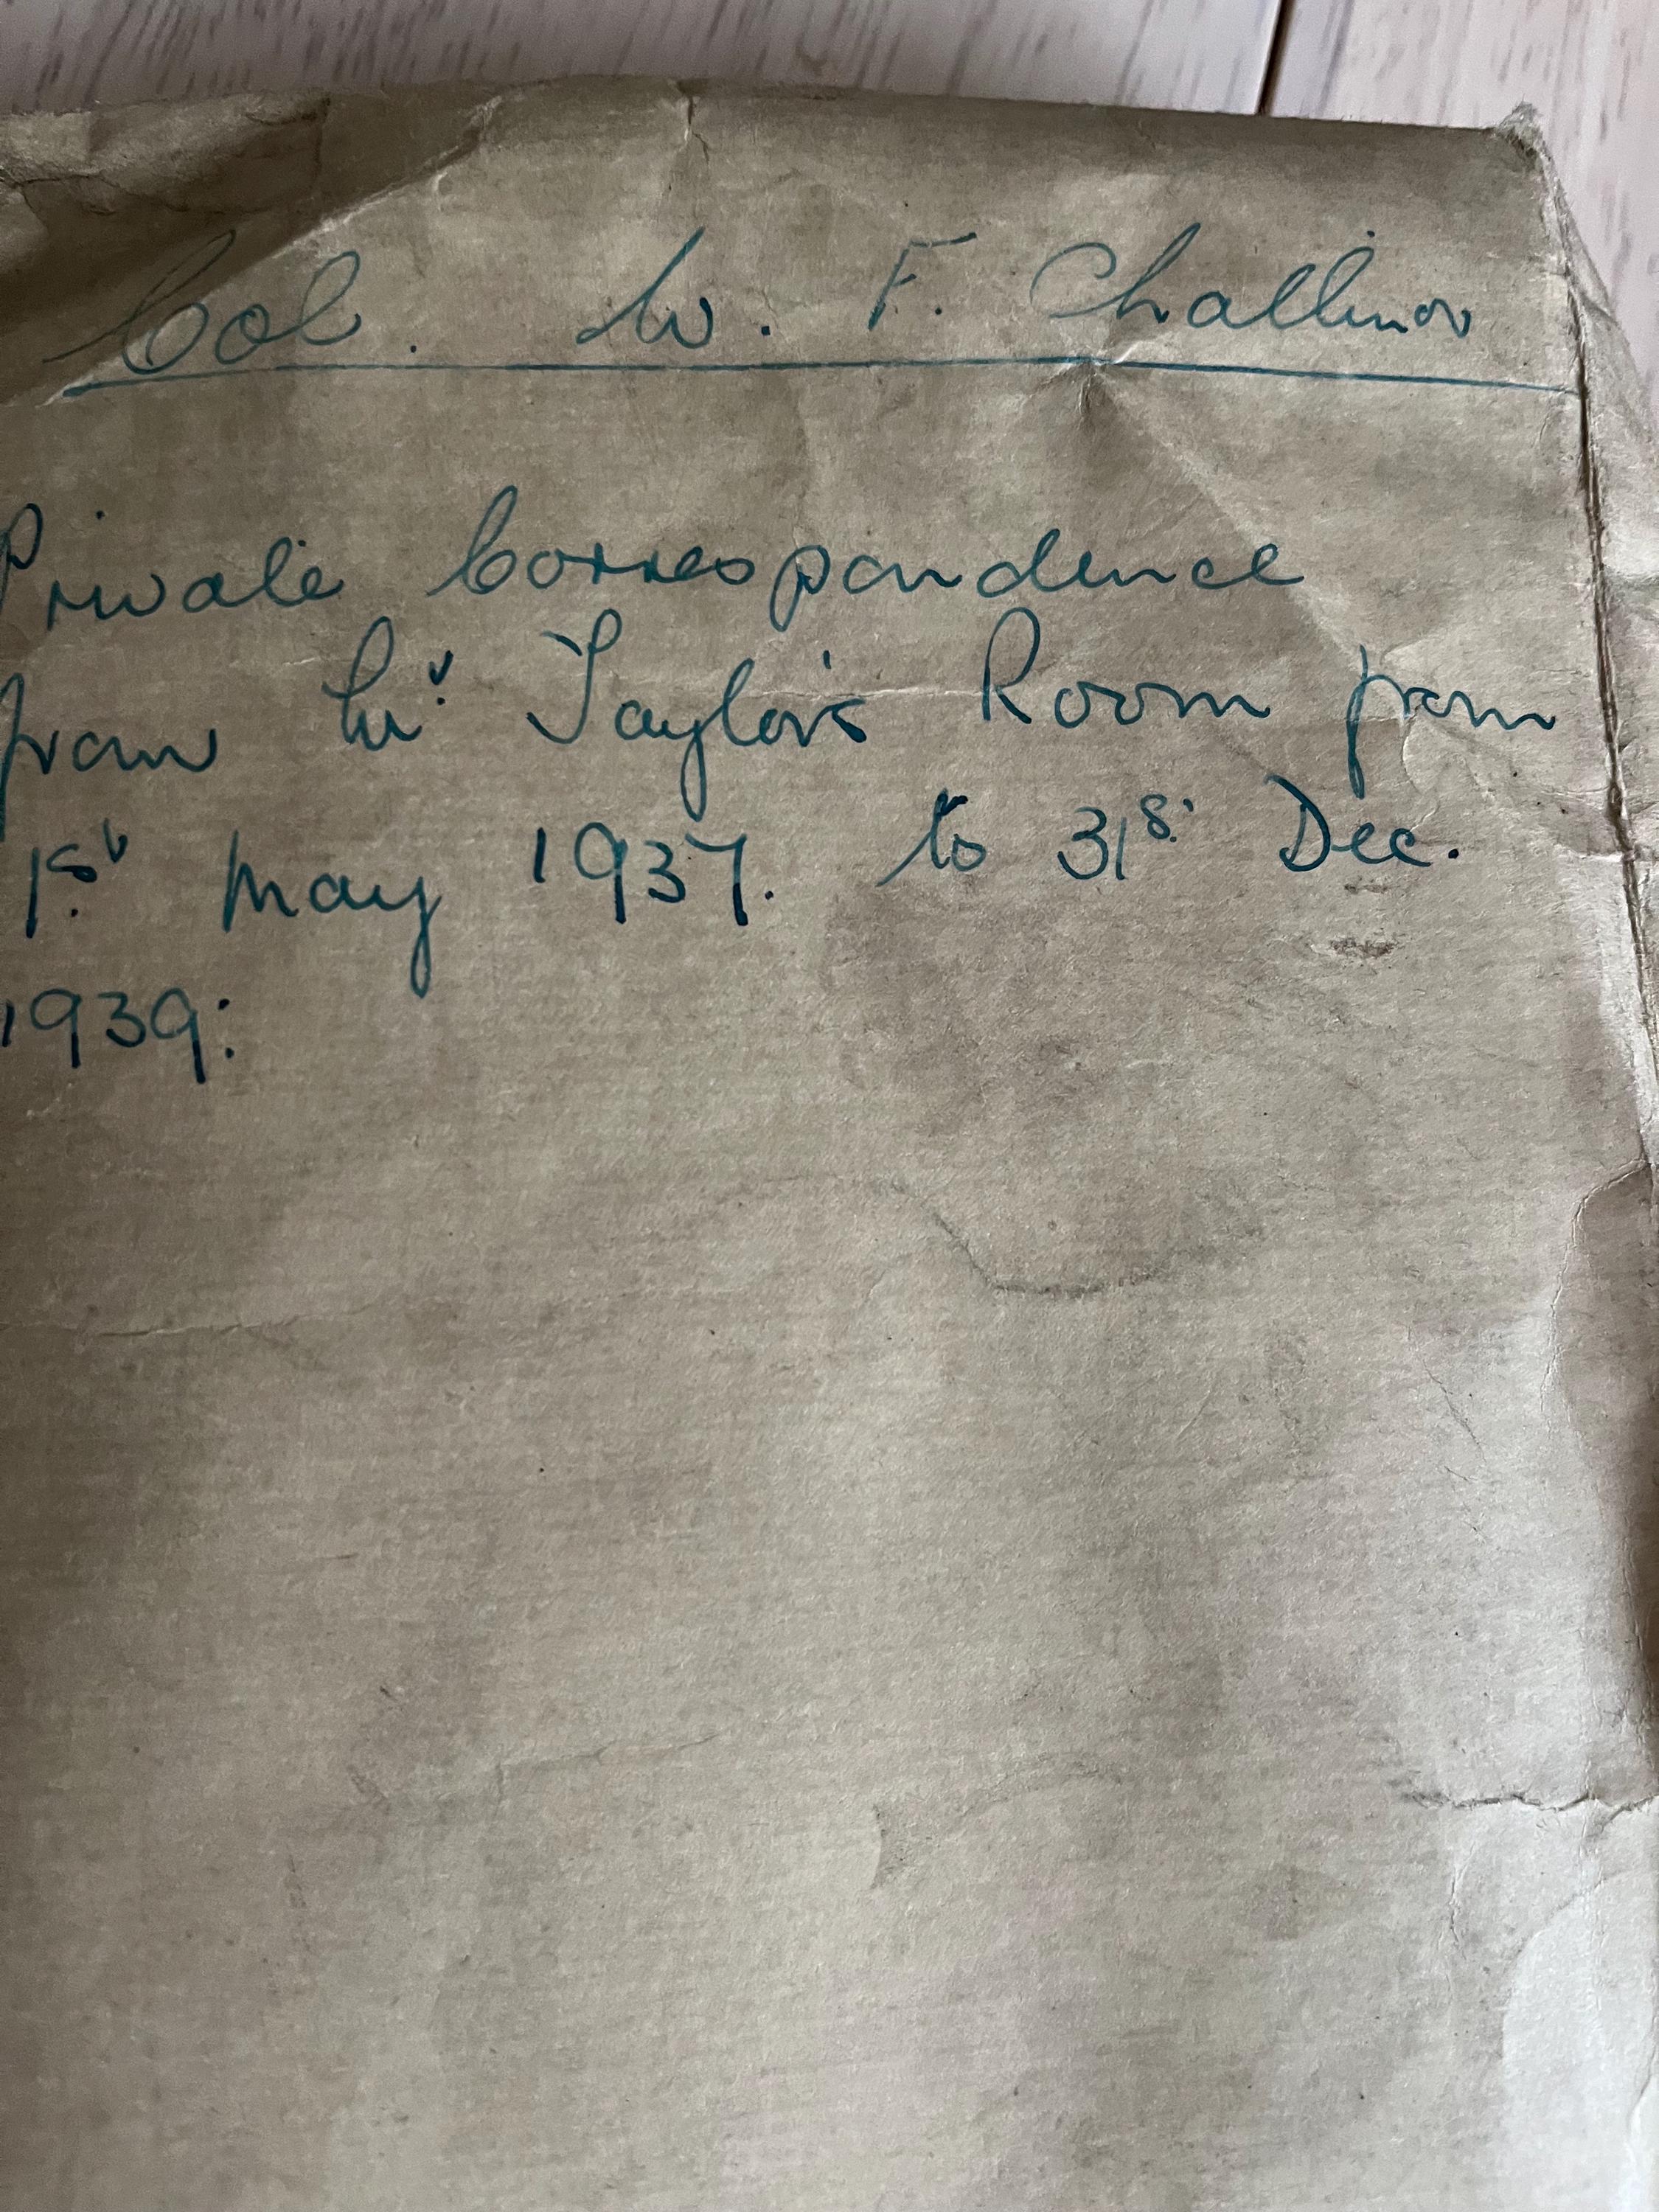 Col. W. F. Challinor
Private Correspondence
from Mr. Taylor's Room from
1st. May 1937. to 31s. Dec.
1939: